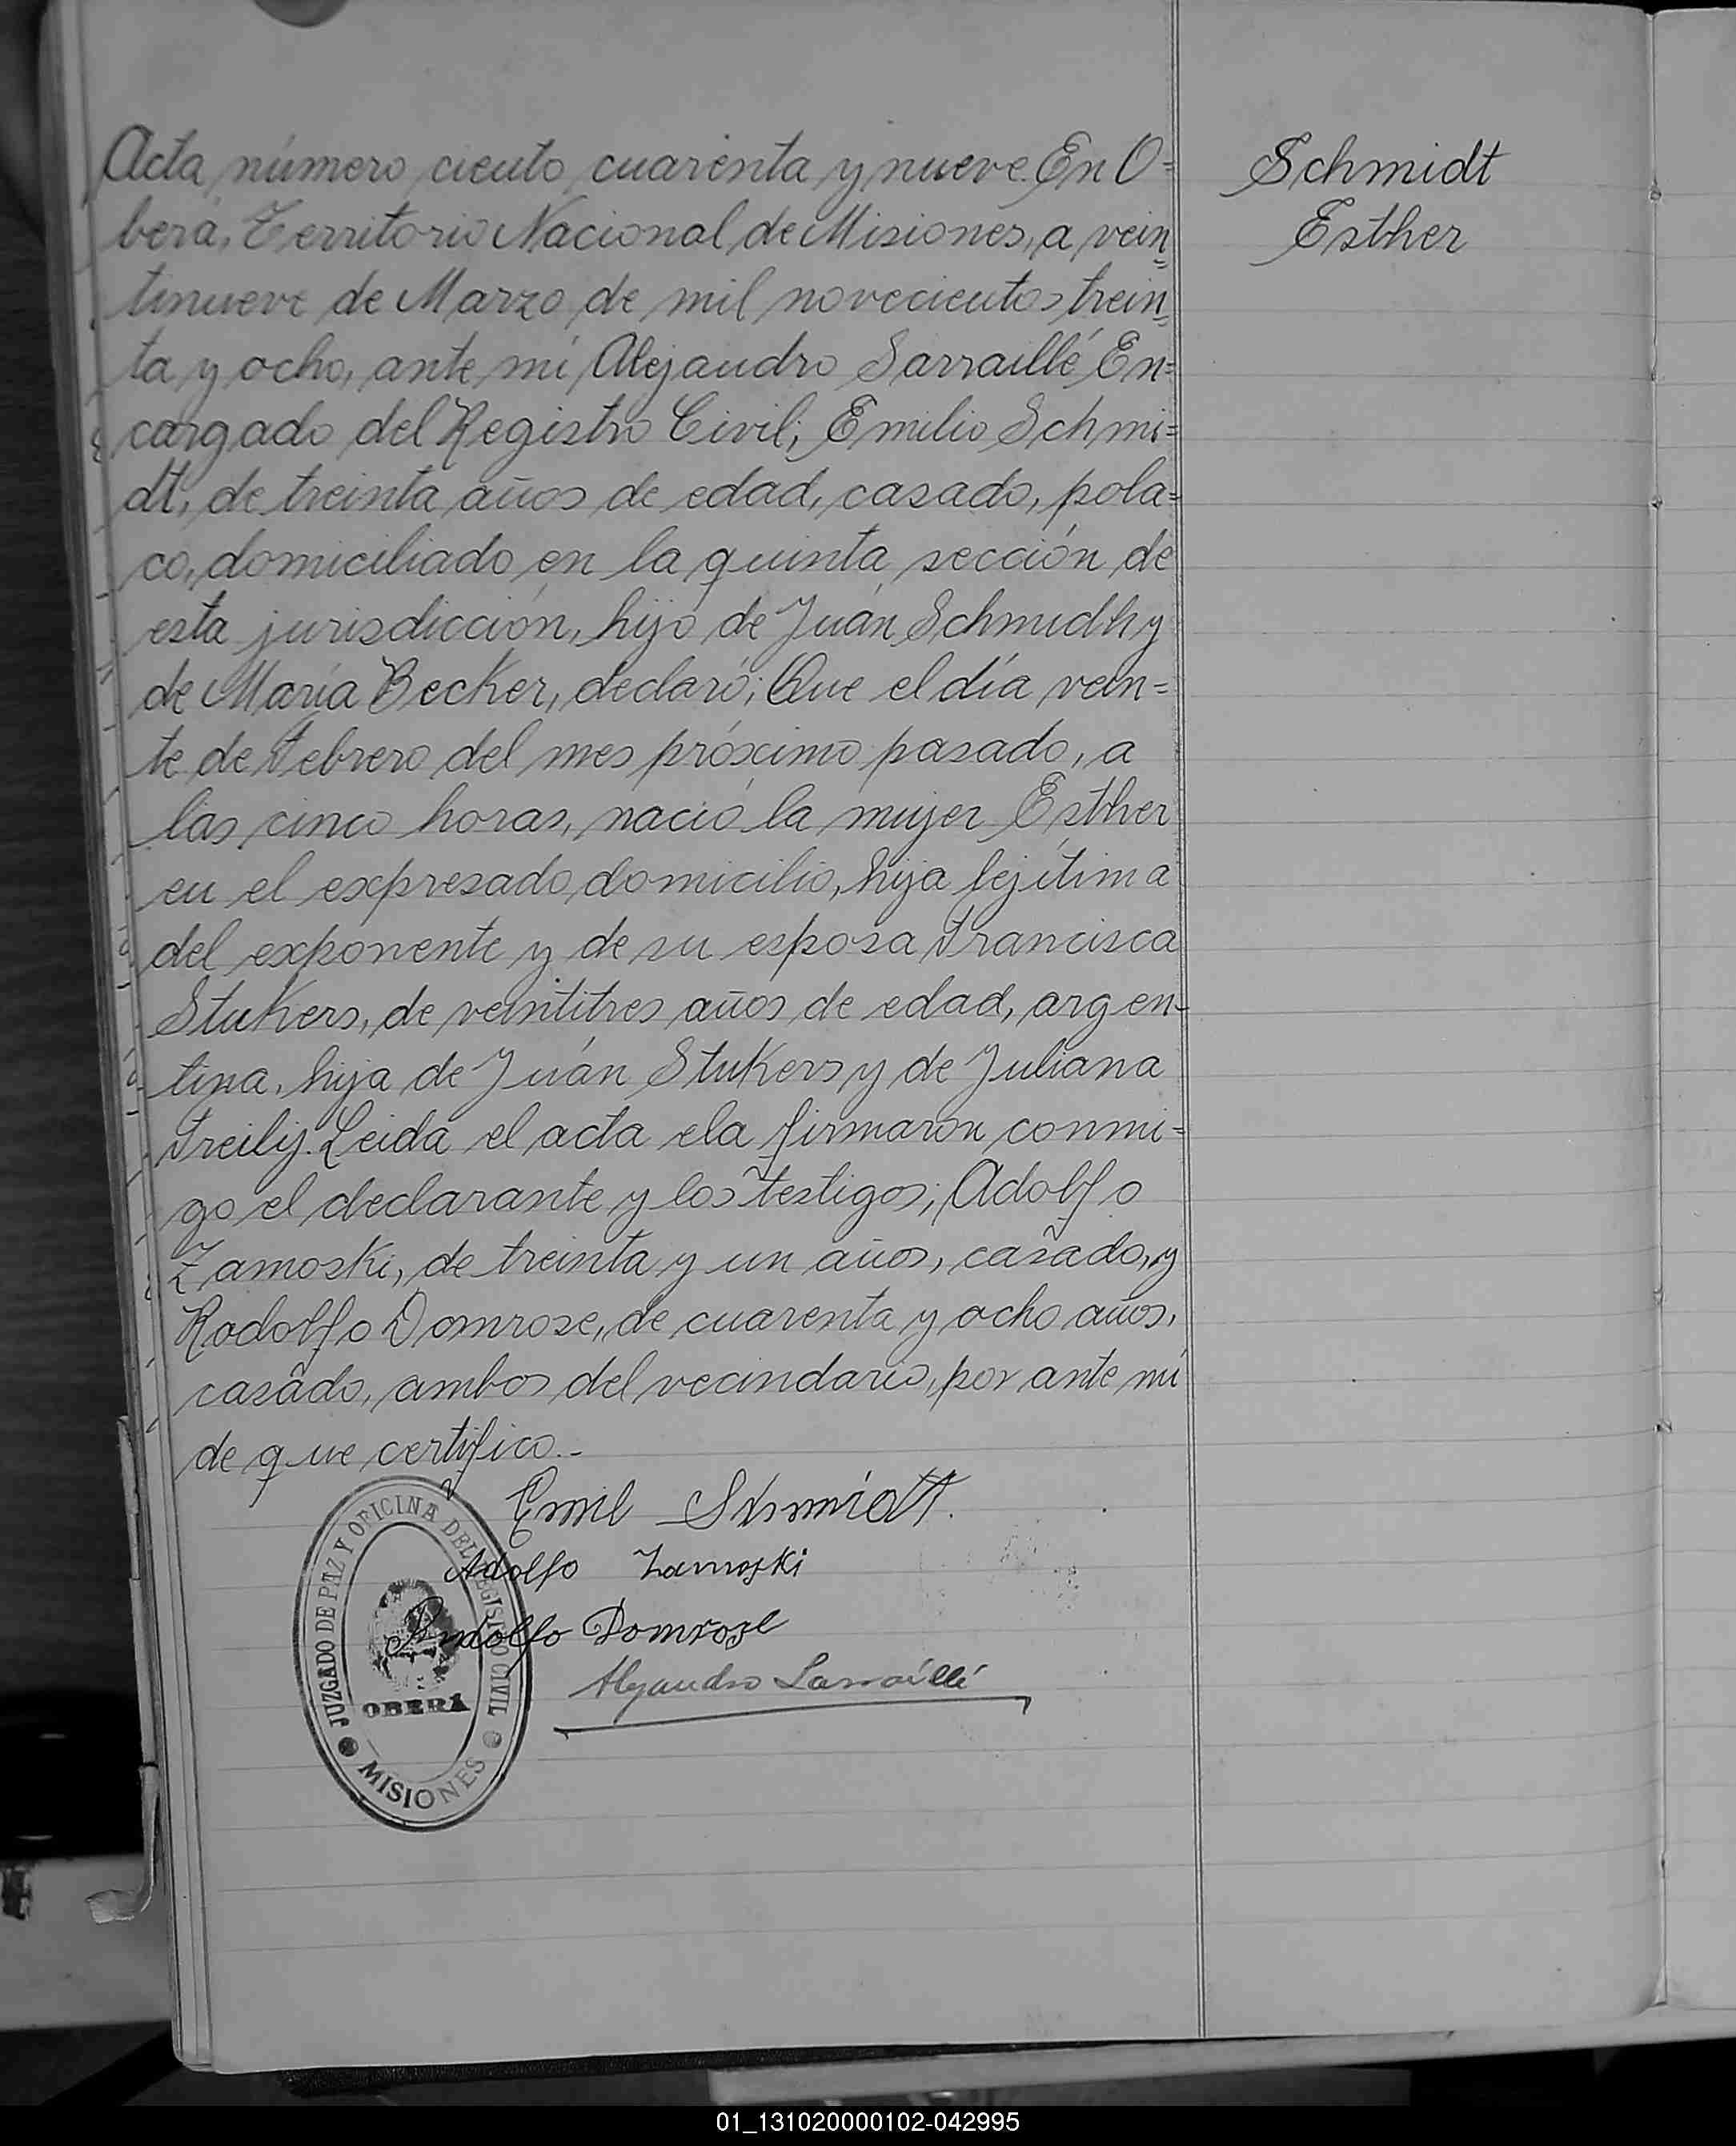 Acta número ciento cuarenta y nueve. En O=
berá, Territorio Nacional de Misiones, a vein=
tinueve de Marzo de mil novecientos trein=
ta y ocho, ante mí Alejandro Sarraillé En=
cargado del Registro Civil; Emilio Schmi=
dt, de treinta años de edad, casado, pola=
co, domiciliado en la quinta sección de
esta jurisdicción, hijo de Juán Schmidh y
de María Becker, declaró; Que el día vein=
te de Febrero del mes próximo pasado, a
las cinco horas, nació la mujer Esther
en el expresado domicilio, hija lejítima
del exponente y de su esposa Francisca
Stukers, de veintitres años de edad, argen-
tina, hija de Juán Stukers y de Juliana
Freilij. Leida el acta ela firmaron conmi=
go el declarante y los testigos; Adolfo
Zamoski, de treinta y un años, casado, y
Rodolfo Domrose, de cuarenta y ocho años,
casado, ambos del vecindario, por ante mí
de que certifico.-
Schmidt
Esther
Emil Schmidt.
Adolfo Zamoski
Rudolfo Domrose
Alejandro Sarraillé
JUZGADO DE PAZ Y OFICINA DEL REGISTRO CIVIL
OBERÁ
MISIONES
01_131020000102-042995